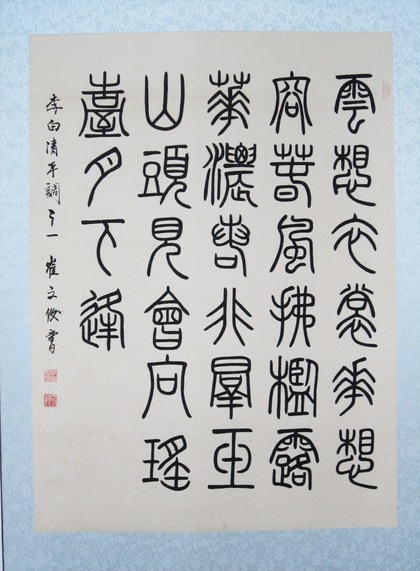 雲想衣裳花想
容春風拂檻露
華濃若非羣玉
山頭見會向瑤
臺月下逢
李白清平調之一 崔文書